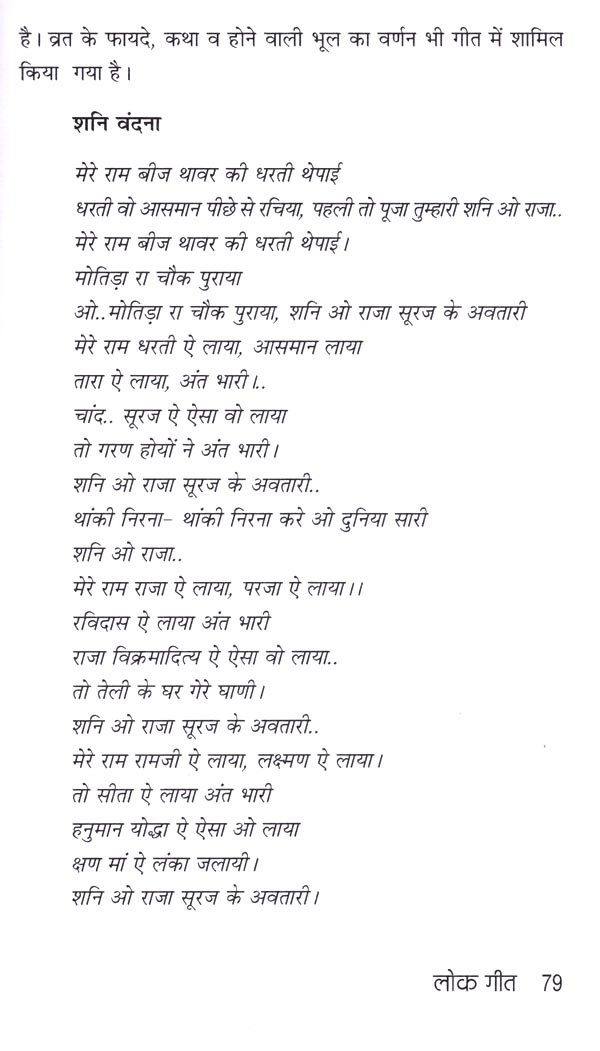 है। व्रत के फायदे, कथा व होने वाली भूल का वर्णन भी गीत में शामिल
किया गया है।
शनि वंदना
मेरे राम बीज थावर की धरती थेपाई
धरती वो आसमान पीछे से रचिया, पहली तो पूजा तुम्हारी शनि ओ राजा..
मेरे राम बीज थावर की धरती थेपाई।
मोतिड़ा रा चौक पुराया
ओ..मोतिड़ा रा चौक पुराया, शनि ओ राजा सूरज के अवतारी
मेरे राम धरती ऐ लाया, आसमान लाया
तारा ऐ लाया, अंत भारी।..
चांद.. सूरज ऐ ऐसा वो लाया
तो गरण होयों ने अंत भारी।
शनि ओ राजा सूरज के अवतारी..
थांकी निरना- थांकी निरना करे ओ दुनिया सारी
शनि ओ राजा..
मेरे राम राजा ऐ लाया, परजा ऐ लाया।।
रविदास ऐ लाया अंत भारी
राजा विक्रमादित्य ऐ ऐसा वो लाया..
तो तेली के घर गेरे घाणी।
शनि ओ राजा सूरज के अवतारी..
मेरे राम रामजी ऐ लाया, लक्ष्मण ऐ लाया।
तो सीता ऐ लाया अंत भारी
हनुमान योद्धा ऐ ऐसा ओ लाया
क्षण मां ऐ लंका जलायी।
शनि ओ राजा सूरज के अवतारी।
लोक गीत 79